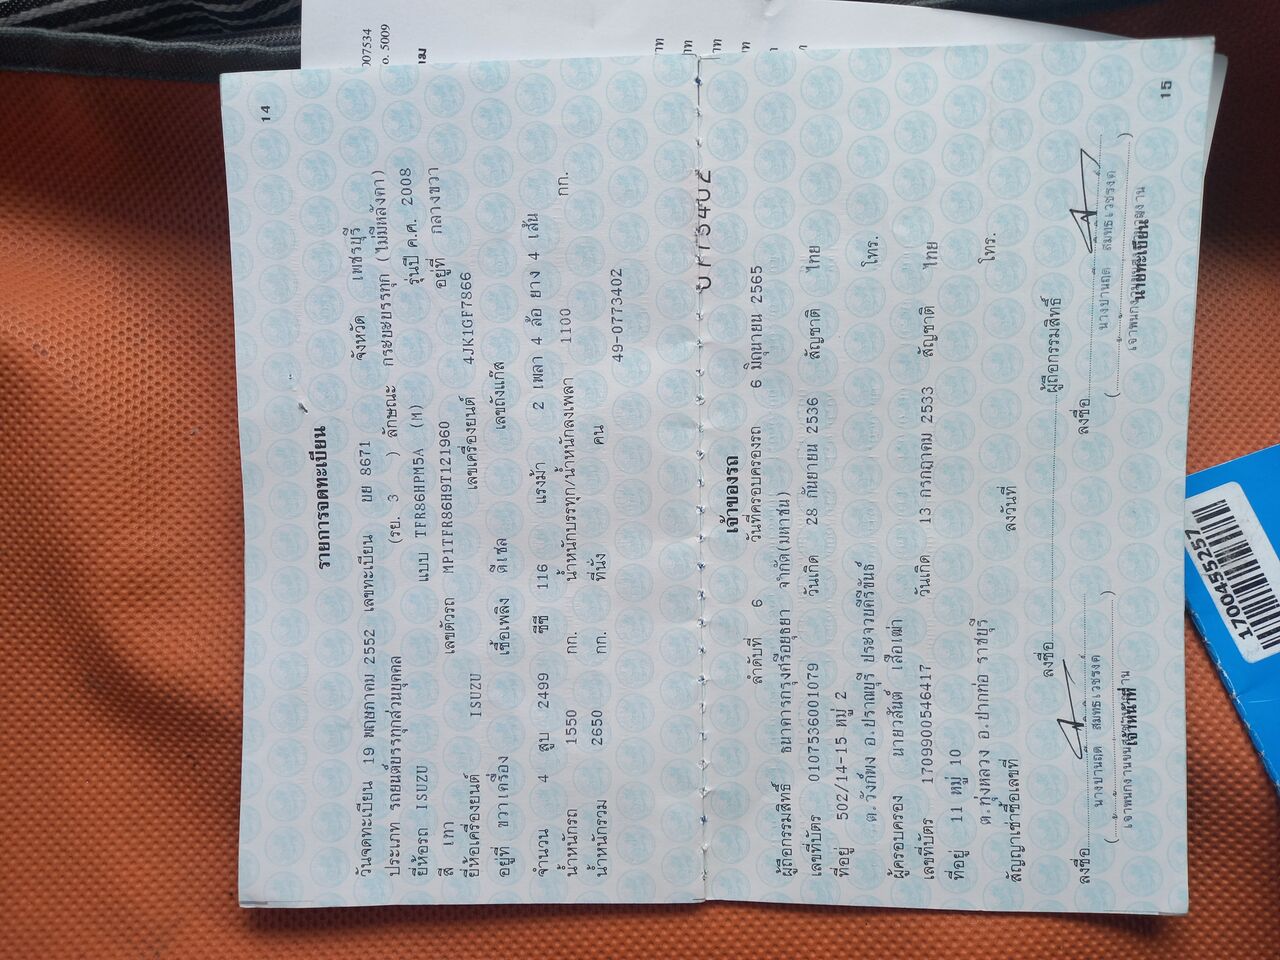 007534
o. 5009
14
รายการจดทะเบียน
วันจดทะเบียน 19 พฤษภาคม 2552 เลขทะเบียน บย 8671 จังหวัด เพชรบุรี
ประเภท รถยนต์บรรทุกส่วนบุคคล (รย. 3 ) ลักษณะ กระบะบรรทุก (ไม่มีหลังคา)
ยี่ห้อรถ ISUZU แบบ TFR86HPM5A (M) รุ่นปี ค.ศ. 2008
สี เทา เลขตัวรถ MP1TFR86H9T121960 อยู่ที่ กลางขวา
ยี่ห้อเครื่องยนต์ ISUZU เลขเครื่องยนต์ 4JK1GF7866
อยู่ที่ ขวาเครื่อง เชื้อเพลิง ดีเซล เลขถังแก๊ส
จำนวน 4 สูบ 2499 ซีซี 116 แรงม้า 2 เพลา 4 ล้อ ยาง 4 เส้น
น้ำหนักรถ 1550 กก. น้ำหนักบรรทุก/น้ำหนักลงเพลา 1100 กก.
น้ำหนักรวม 2650 กก. ที่นั่ง คน
49-0773402
เจ้าของรถ
ลำดับที่ 6 วันที่ครอบครองรถ 6 มิถุนายน 2565
ผู้ถือกรรมสิทธิ์ ธนาคารกรุงศรีอยุธยา จำกัด(มหาชน)
เลขที่บัตร 0107536001079 วันเกิด 28 กันยายน 2536 สัญชาติ ไทย
ที่อยู่ 502/14-15 หมู่ 2
ต.วังก์พง อ.ปราณบุรี ประจวบคีรีขันธ์ โทร.
ผู้ครอบครอง นายวสันต์ เสือเฒ่า
เลขที่บัตร 1709900546417 วันเกิด 13 กรกฎาคม 2533 สัญชาติ ไทย
ที่อยู่ 11 หมู่ 10
ต.ทุ่งหลวง อ.ปากท่อ ราชบุรี โทร.
สัญญาเช่าซื้อเลขที่ ลงวันที่
ลงชื่อ ผู้ถือกรรมสิทธิ์
ลงชื่อ ลงชื่อ
( ) ( )
เจ้าหน้าที่ นายทะเบียน
15
1700455257